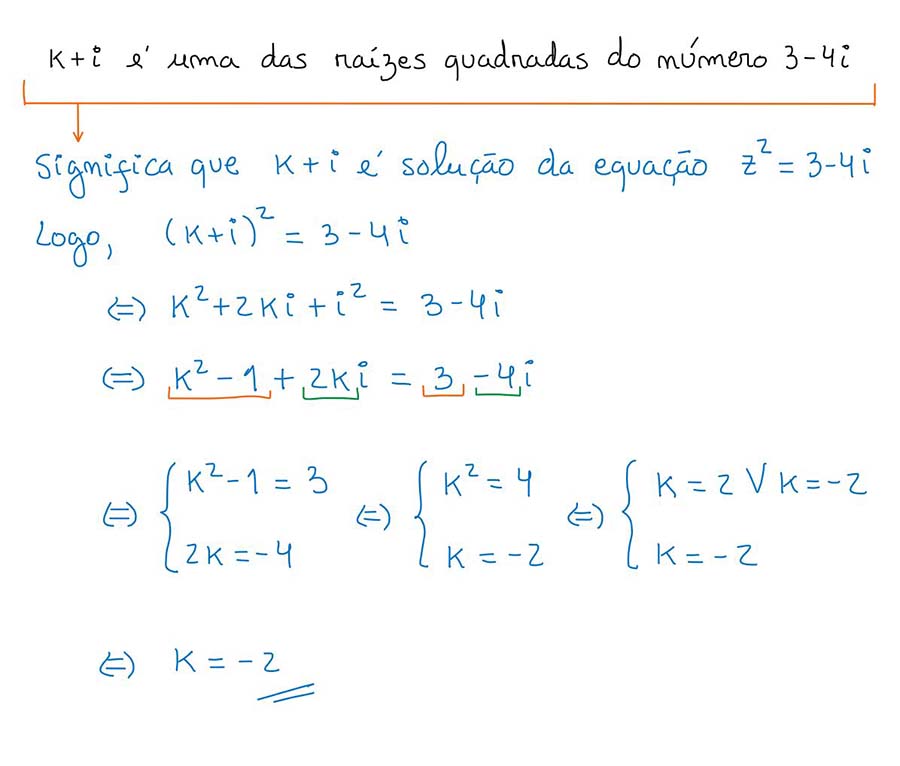 k+i é uma das raízes quadradas do número 3-4i
Significa que k+i é solução da equação z² = 3-4i
Logo, (k+i)² = 3-4i
(=) k²+2ki+i² = 3-4i
(=) k²-1+2ki = 3-4i
(=) { k²-1=3 (=) { k²=4 (=) { k=2 ∨ k=-2
2k=-4 k=-2 k=-2
(=) k=-2